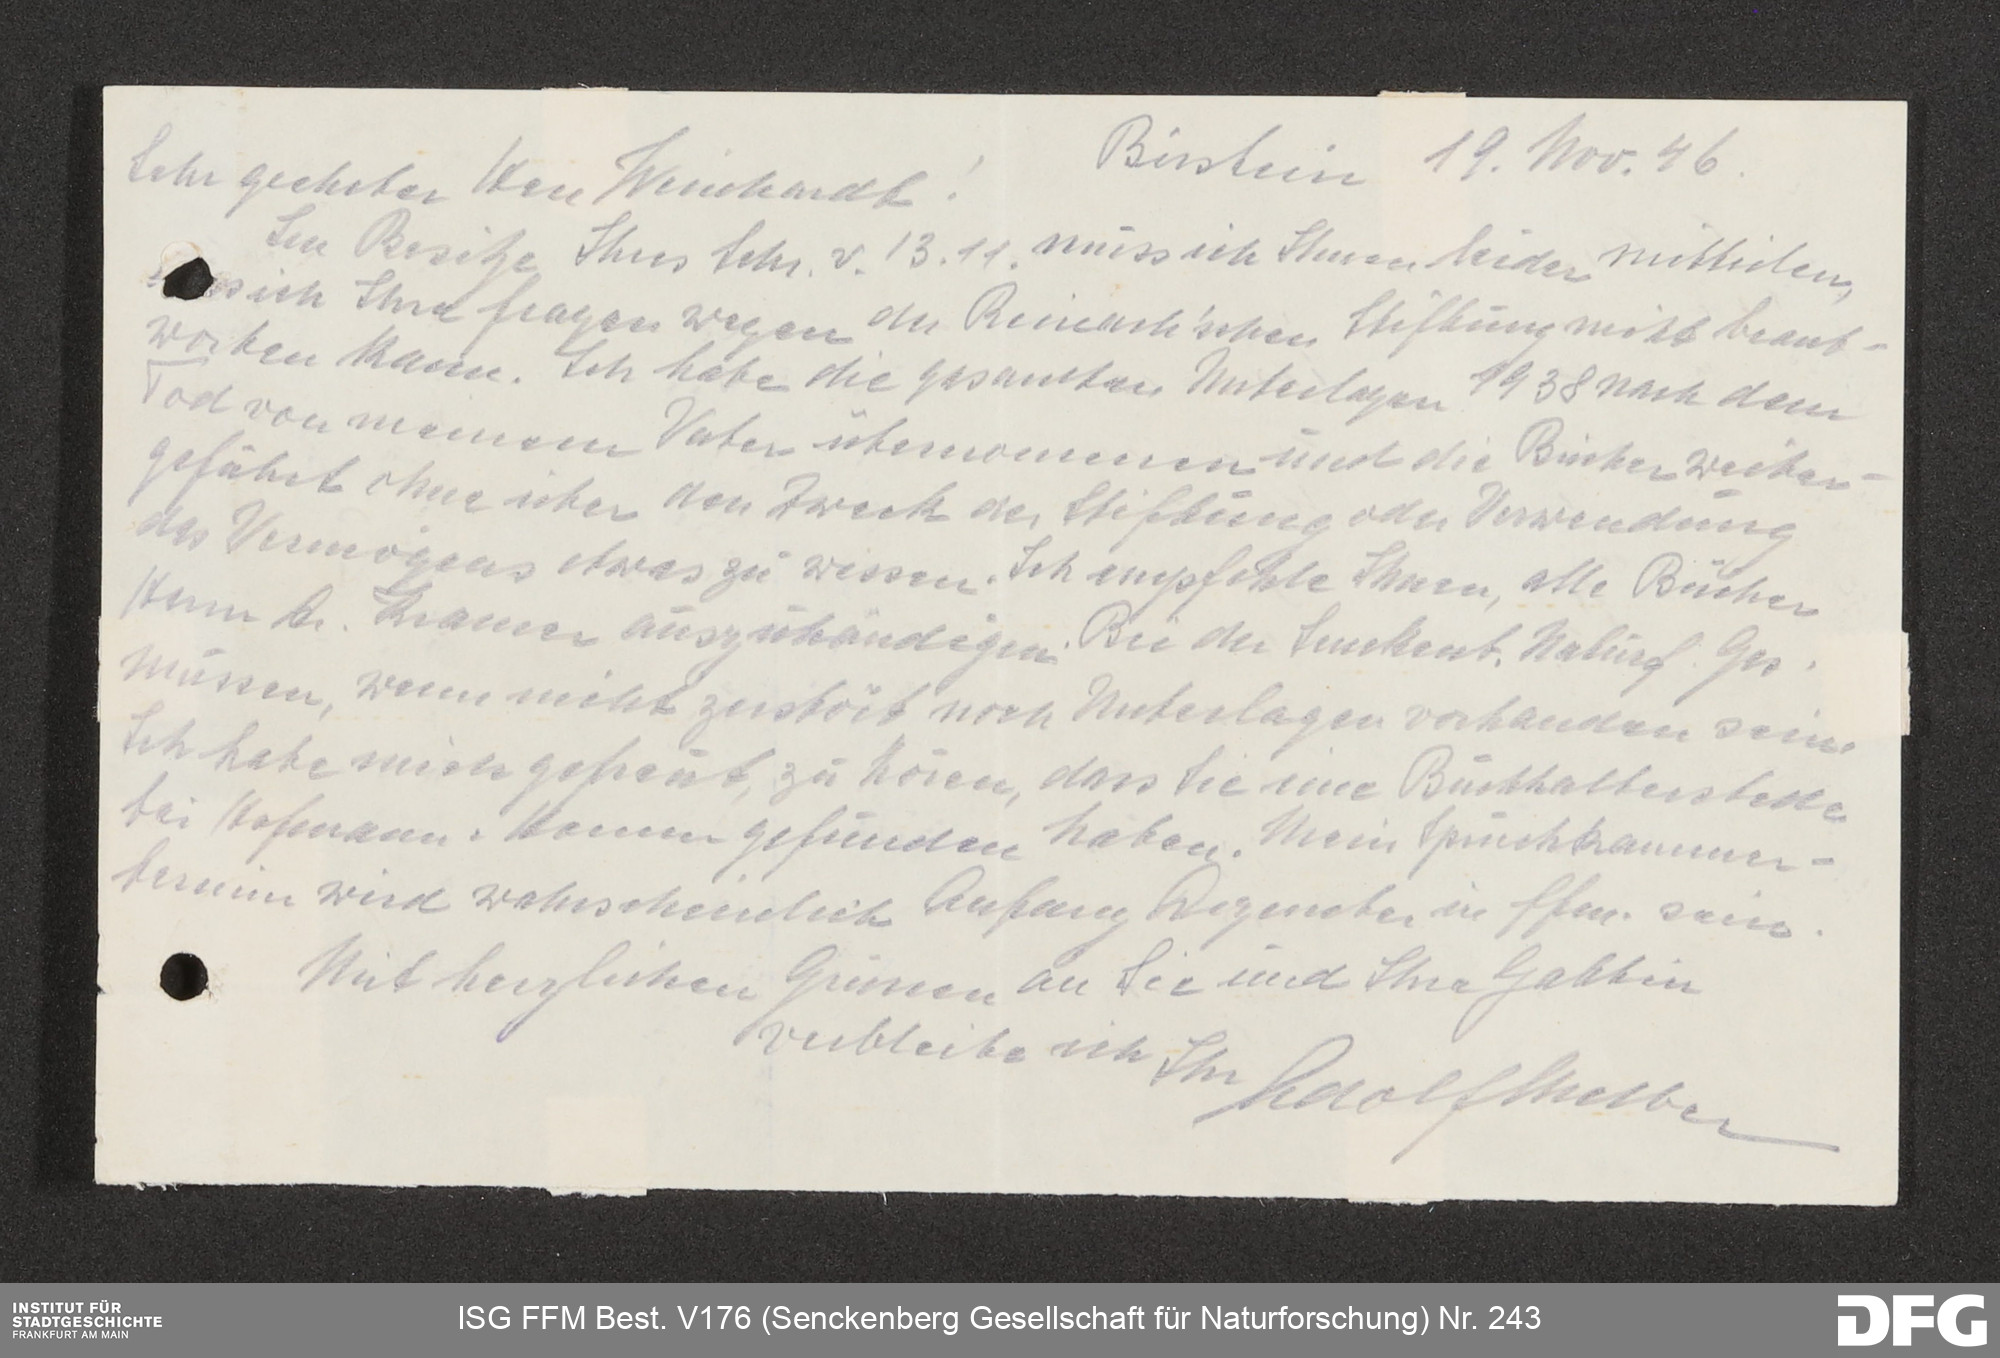 Birstein 19. Nov. 46.
Sehr geehrter Herr Weinhardt!
Im Besitze Ihres Schr. v. 13.11. muss ich Ihnen leider mitteilen,
ich Ihre Fragen wegen der Reinach'schen Stiftung nicht beant-
worten kann. Ich habe die gesamten Unterlagen 1938 nach dem
Tod von meinem Vater übernommen und die Bücher weiter-
geführt ohne über den Zweck der Stiftung oder Verwendung
des Vermögens etwas zu wissen. Ich empfehle Ihnen, alle Bücher
Herrn Dr. Kramer auszuhändigen. Bei der Senckenb. Naturf. Ges.
müssen, wenn nicht zerstört noch Unterlagen vorhanden sein.
Ich habe mich gefreut, zu hören, dass Sie eine Buchhalterstelle
bei Hofmann & gefunden haben. Mein Spruchkammer-
termin wird wahrscheinlich Anfang Dezember in Ffm. sein.
Mit herzlichen Grüssen an Sie und Ihre Gattin
verbleibe ich Ihr Adolf Melber
INSTITUT FÜR
STADTGESCHICHTE
FRANKFURT AM MAIN
ISG FFM Best. V176 (Senckenberg Gesellschaft für Naturforschung) Nr. 243
DFG